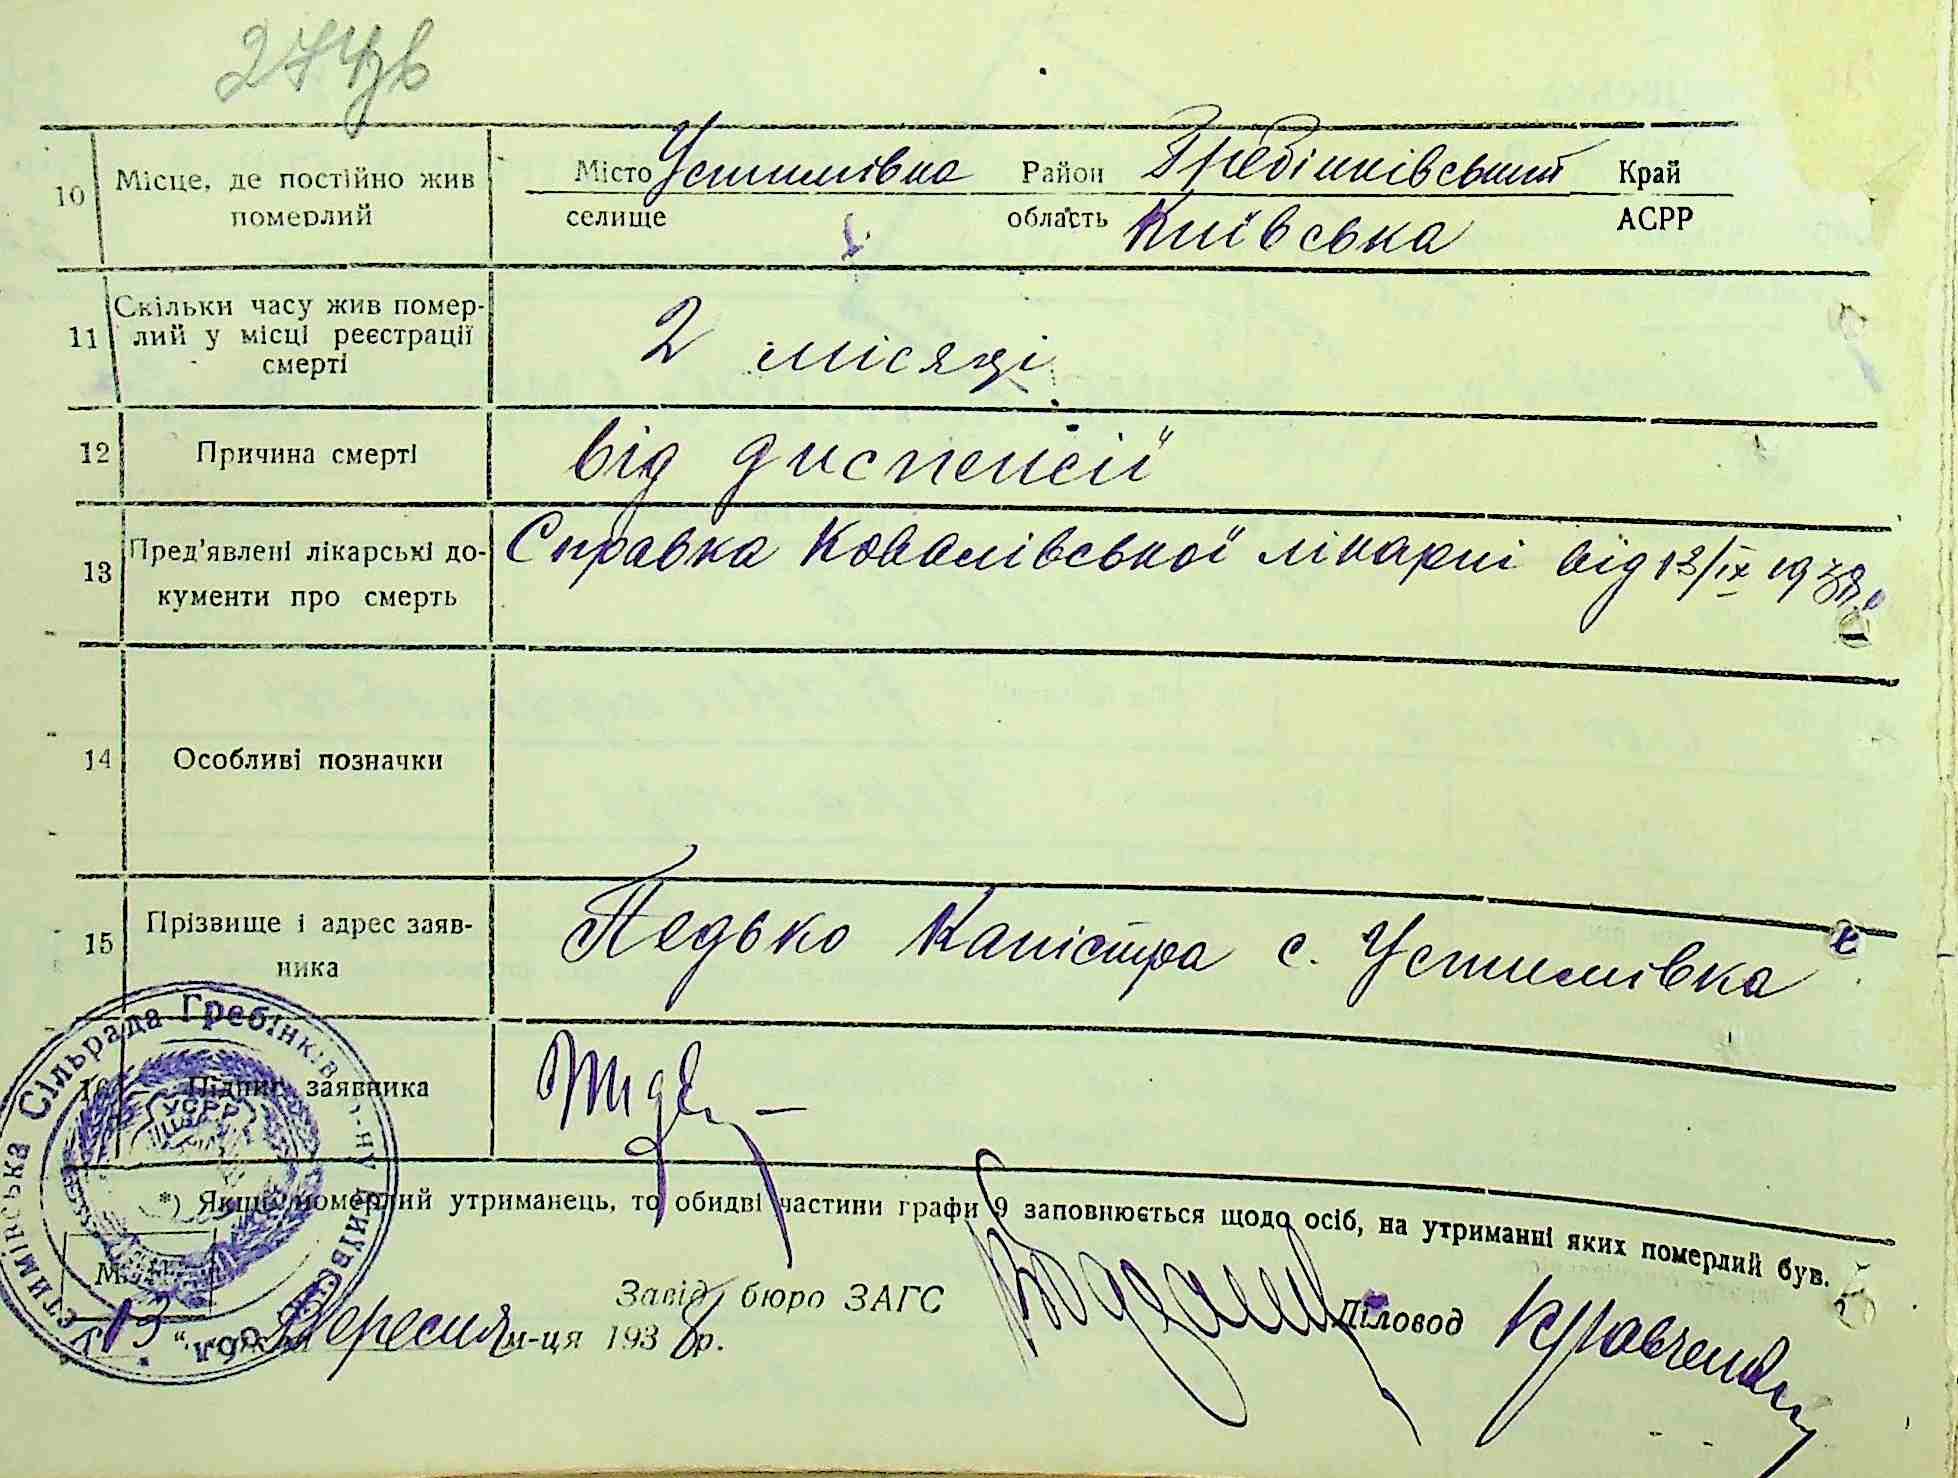 10 Місце, де постійно жив
померлий
Місто Устимівка Район Гребінківський Край
селище область Київська АСРР
11 Скільки часу жив помер-
лий у місці реєстрації
смерті
2 місяці
12 Причина смерті
від диспепсії
13 Пред'явлені лікарські до-
кументи про смерть
Справка Ковалівської лікарні від 13/IX 1938р.
14 Особливі позначки
15 Прізвище і адрес заяв-
ника
Педько Каністра с. Устимівка
16 Підпис заявника
*) Якщо померлий утриманець, то обидві частини графи 9 заповнюється щодо осіб, на утриманні яких померлий був.
М. П.
Завід. бюро ЗАГС
Діловод Кравченко
„13“ Вересня м-ця 1938 р.
Устимівська Сільрада Гребінків р-ну Київськ. обл.
УСРР